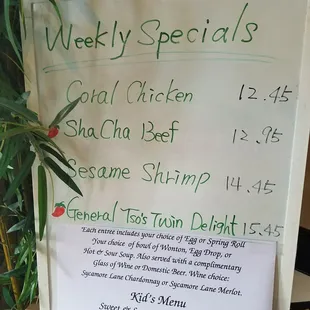 Weekly Specials
Coral Chicken 12.45
ShaCha Beef 12.95
Sesame Shrimp 14.45
General Tso's Twin Delight 15.45
Each entree includes your choice of Egg or Spring Roll
Your choice of bowl of Wonton, Egg Drop, or
Hot & Sour Soup. Also served with a complimentary
Glass of Wine or Domestic Beer. Wine choice:
Sycamore Lane Chardonnay or Sycamore Lane Merlot.
Kid's Menu
Sweet &